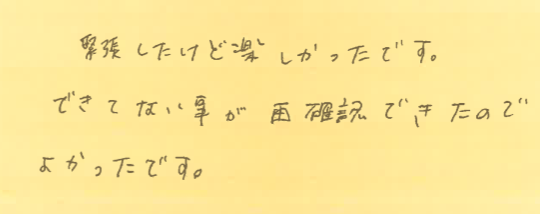 緊張したけど楽しかったです。
できてない事が再確認できたので
よかったです。